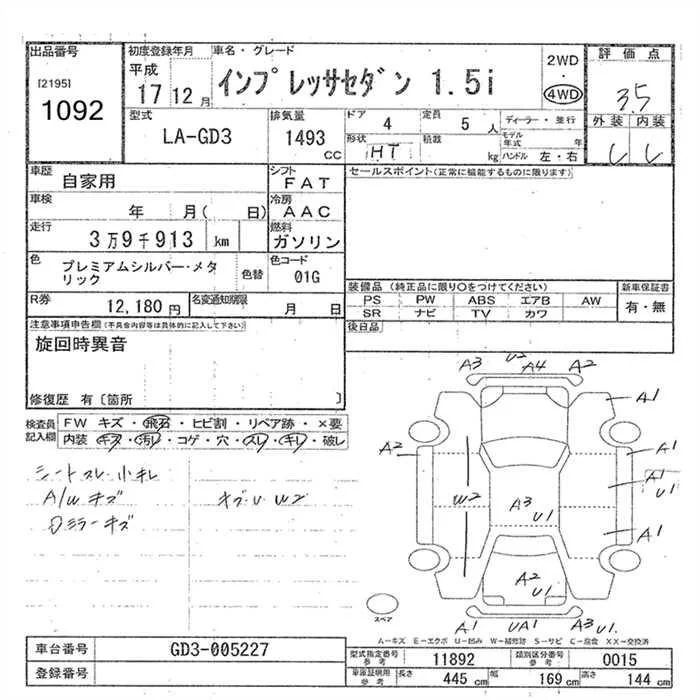 出品番号
[2195]
1092
初度登録年月
平成
17 12 月
車名・グレード
インプレッサセダン 1.5i
2WD
・
4WD
評価点
3.5
外装 内装
型式
LA-GD3
排気量
1493
CC
ドア
4
定員
5 人
形状
HT
積載
kg
ディーラー・並行
モデル
年式 年
ハンドル 左・右
車歴
自家用
シフト
FAT
車検
年 月( 日)
冷房
AAC
走行
3万9千913 km
燃料
ガソリン
色
プレミアムシルバー・メタ
リック
色替
色コード
01G
R券
12,180 円
名変通知期限
月 日
セールスポイント(正常に機能するものに限ります)
装備品 (純正品に限り○をつけてください)
PS PW ABS エアB AW
SR ナビ TV カワ
新車保証書
有・無
後日品
注意事項申告欄(不具合内容等は具体的に記入して下さい)
旋回時異音
修復歴 有〔箇所 〕
検査員
記入欄
FW キズ・飛石・ヒビ割・リペア跡・×要
内装・キズ・汚レ・コゲ・穴・スレ・キレ・破レ
シートスレ・小キレ
A/W キズ
Dミラーキズ
キズ・U W2
A3 U2 A4 A2
A1
A2
A1
W2
A1
U1
A3
U1
A1
A2
U1
A1 UA1 A3 U1
スペア
A-キズ E-エクボ U-凹み W-補修跡 S-サビ C-腐食 XX-交換済
車台番号
GD3-005227
登録番号
型式指定番号
参考
11892
類別区分番号
参考
0015
車庫証明用
参考
長さ
445 cm
幅
169 cm
高さ
144 cm